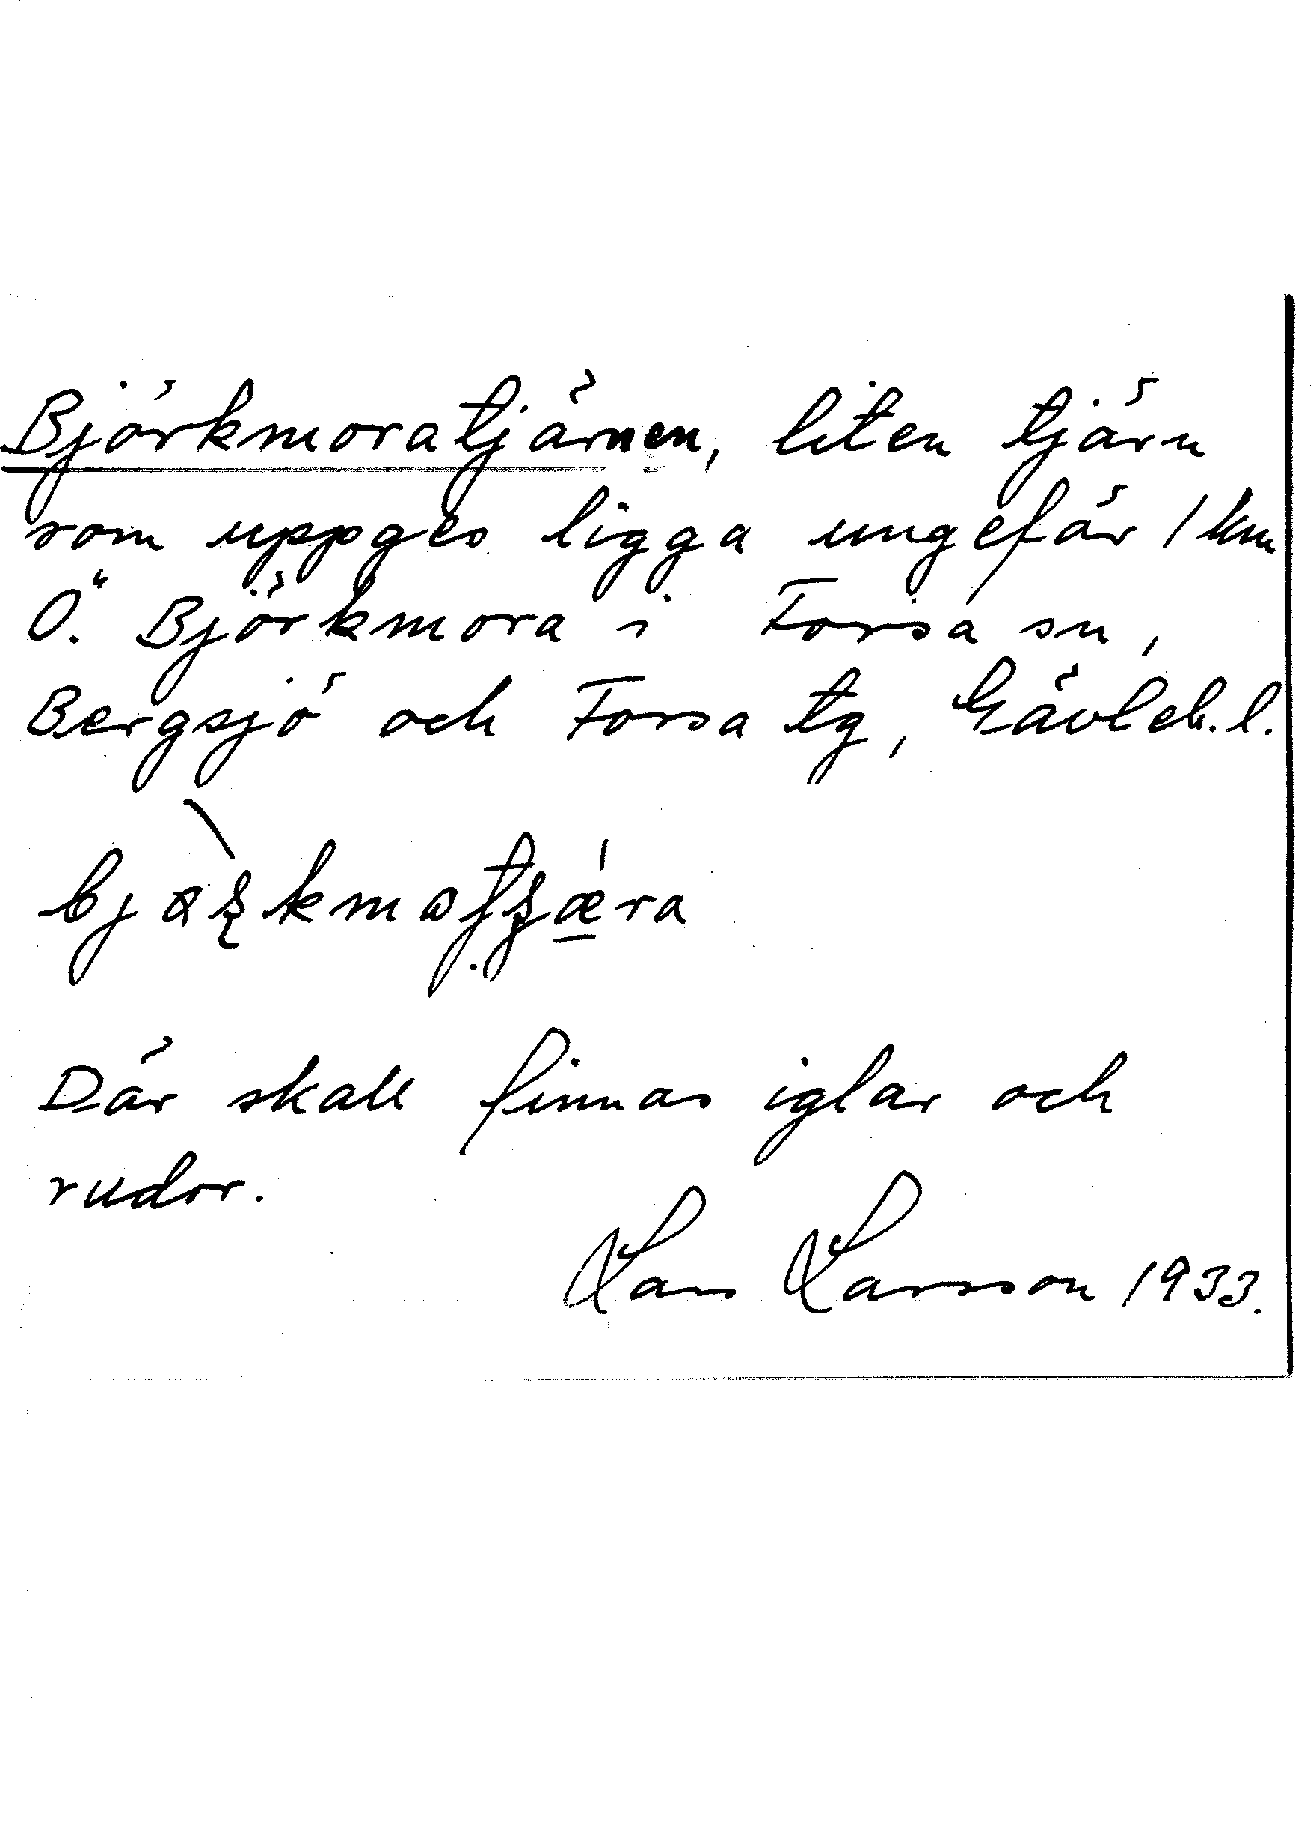 Björkmoratjärnen, liten tjärn
som uppges ligga ungefär 1 km
Ö. Björkmora i Forsa sn,
Bergsjö och Forsa tg, Gävleb. l.
Där skall finnas iglar och
rudor.
Lars Larsson 1933.